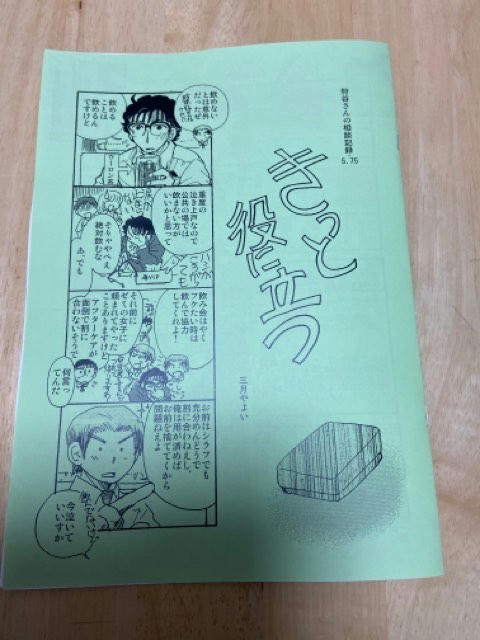 狩谷さんの相談記録
5.75
きっと
役に立つ
三月やよい
飲めない
とは意外
だったぜ
飲める
ことは
飲めるん
ですけど
ウーロン茶
重度の
泣き上戸なので
公共の場では
飲まない方が
いいかと思って
そりゃやべえ
絶対飲むな
あ、でも
飲み会はやく
フケたい時は
飲んで協力
してくれよ！
それ前に
ゼミの女子に
頼まれてやった
ことありますけど
アフターケアが
面倒で割に
合わないそうで
何言っ
てんだ
お前はシラフでも
充分めんどうで
割に合わねえし、
俺は用が済めば
お前を捨ててくから
問題ねえよ
今泣いて
いいすか